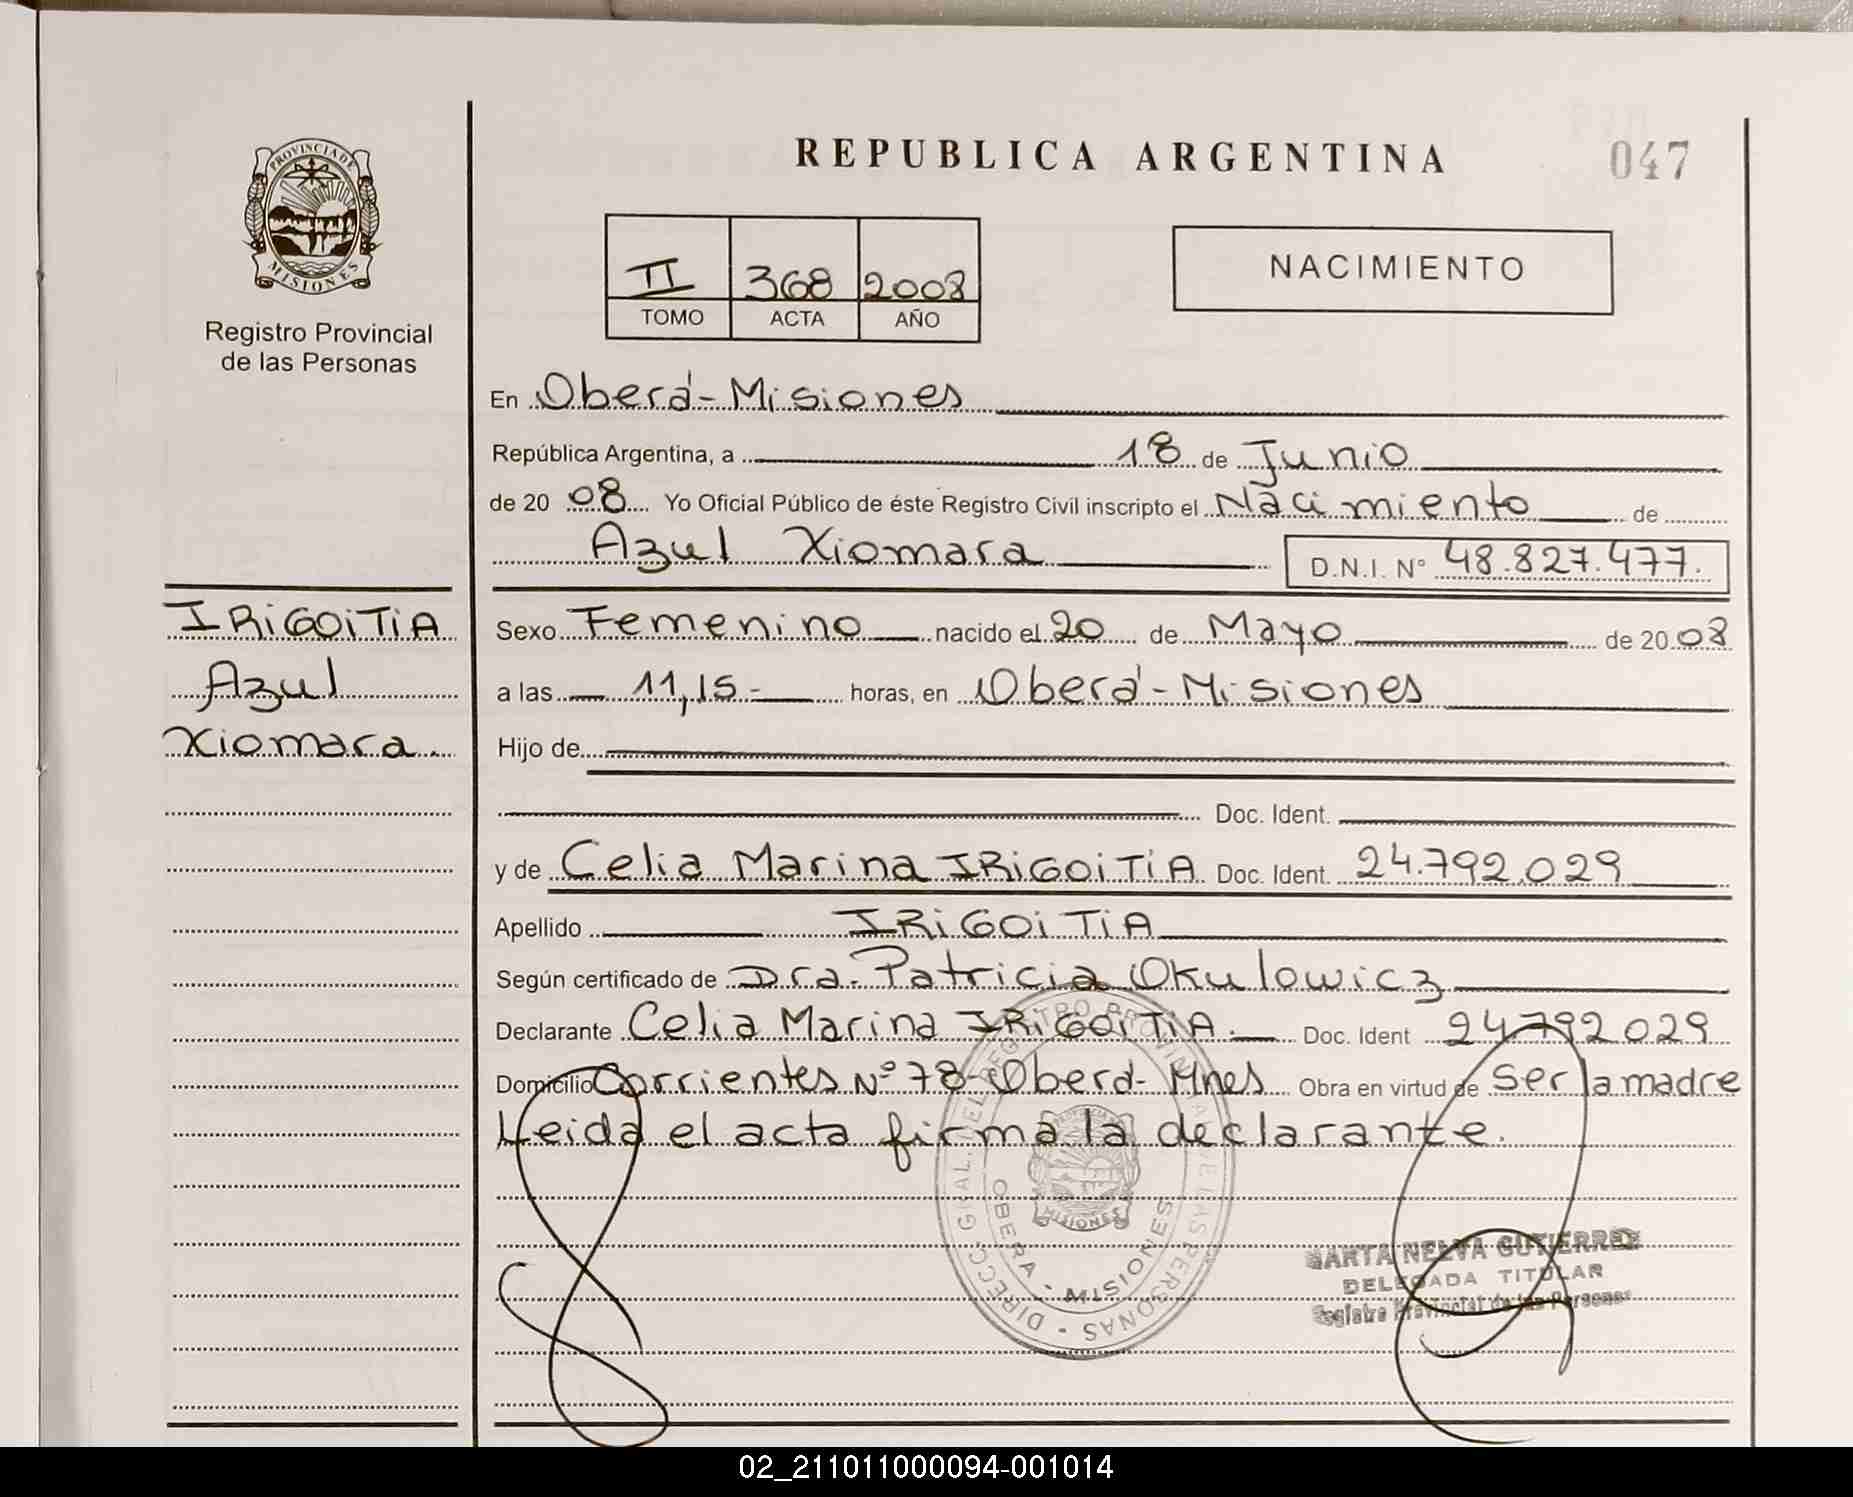 PROVINCIA DE
MISIONES
Registro Provincial
de las Personas
IRIGOITIA
Azul
Xiomara.
REPUBLICA ARGENTINA
047
II 368 2008
TOMO ACTA AÑO
NACIMIENTO
En Oberá-Misiones
República Argentina, a 18 de Junio
de 20 08 Yo Oficial Público de éste Registro Civil inscripto el Nacimiento de
Azul Xiomara D.N.I. N° 48.827.477.
Sexo Femenino nacido el 20 de Mayo de 20 08
a las 11,15- horas, en Oberá-Misiones
Hijo de
Doc. Ident.
y de Celia Marina IRIGOITIA Doc. Ident. 24.792.029
Apellido IRIGOITIA
Según certificado de Dra. Patricia Okulowicz
Declarante Celia Marina IRIGOITIA. Doc. Ident 24792029
Domicilio Corrientes N° 78-Oberá-Mnes Obra en virtud de ser la madre
Leida el acta firma la declarante.
DIRECC. GRAL. DEL REGISTRO PROVINCIAL DE LAS PERSONAS
OBERA - MISIONES
MISIONES
MARTA NELVA GUTIERREZ
DELEGADA TITULAR
Registro Provincial de las Personas
02_211011000094-001014